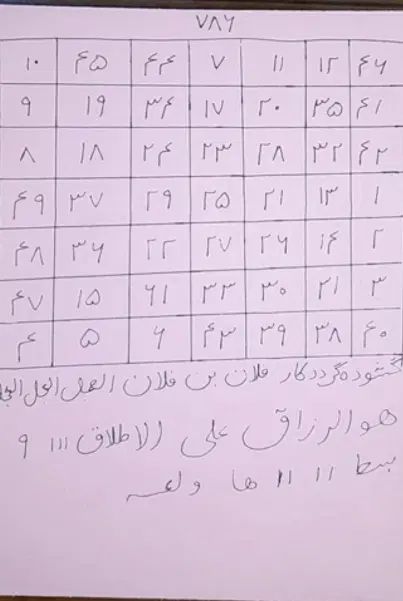 ۷۸۶
۴۶ ۱۲ ۱۱ ۷ ۴۴ ۴۵ ۱۰
۴۱ ۳۵ ۲۰ ۱۷ ۳۴ ۱۹ ۹
۴۲ ۳۲ ۲۸ ۲۳ ۲۴ ۱۸ ۸
۱ ۱۳ ۲۱ ۲۵ ۲۹ ۳۷ ۴۹
۲ ۱۴ ۲۶ ۲۷ ۲۲ ۳۶ ۴۸
۳ ۲۱ ۳۰ ۳۳ ۶۱ ۱۵ ۴۷
۴۰ ۳۸ ۳۹ ۴۳ ۶ ۵ ۴
گشوده گردد کار فلان بن فلان العجل العجل
هو الرزاق علی الاطلاق ۱۱۱ ۹
بسط ۱۱ ۱۱ ها